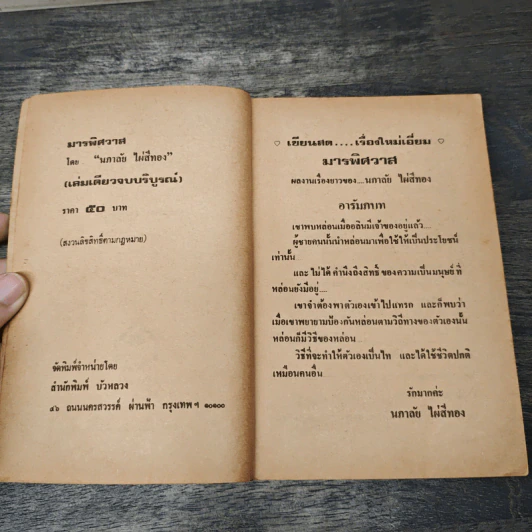 มารพิศวาส
โดย.. "นภาลัย ไผ่สีทอง"
(เล่มเดียวจบบริบูรณ์)
ราคา ๕๐ บาท
(สงวนลิขสิทธิ์ตามกฎหมาย)
จัดพิมพ์จำหน่ายโดย
สำนักพิมพ์ บัวหลวง
๔๖ ถนนนครสวรรค์ ผ่านฟ้า กรุงเทพฯ ๑๐๑๐๐
เขียนสด....เรื่องใหม่เอี่ยม
มารพิศวาส
ผลงานเรื่องยาวของ....นภาลัย ไผ่สีทอง
อารัมภบท
เขาพบหล่อนเมื่ออลินมีเจ้าของอยู่แล้ว....
ผู้ชายคนนั้นนำหล่อนมาเพื่อใช้ให้เป็นประโยชน์
เท่านั้น....
และ ไม่ได้ คำนึงถึงสิทธิ์ ของความเป็นมนุษย์ ที่
หล่อนยังมีอยู่....
เขาจำต้องพาตัวเองเข้าไปแทรก และก็พบว่า
เมื่อเขาพยายามป้องกันหล่อนตามวิถีทางของตัวเองนั้น
หล่อนก็มีวิธีของหล่อน....
วิธีที่จะทำให้ตัวเองเป็นไท และได้ใช้ชีวิตปกติ
เหมือนคนอื่น....
รักมากค่ะ
นภาลัย ไผ่สีทอง